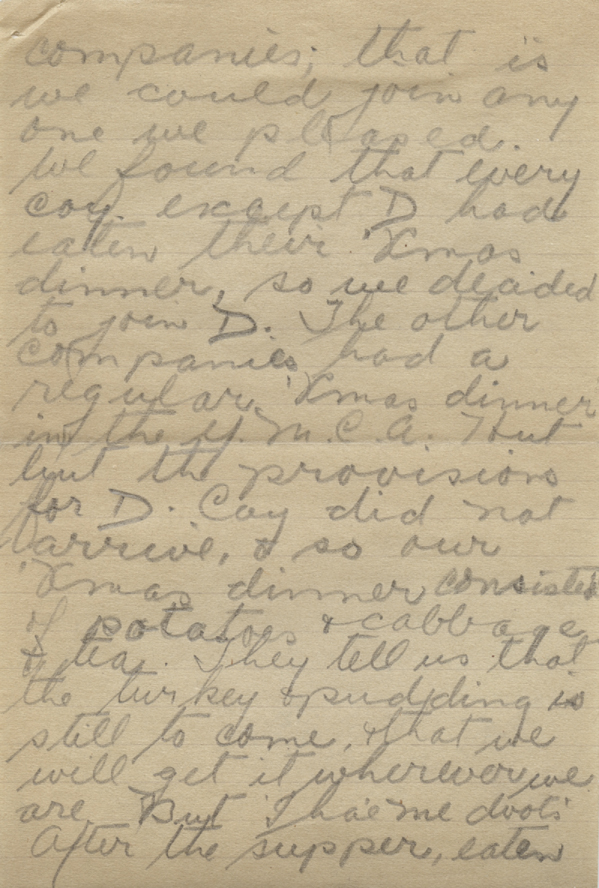 companies; that is
we could join any
one we pleased.
We found that every
coy. except D had
eaten their Xmas
dinner, so we decided
to join D. The other
companies had a
regular Xmas dinner
in the Y.M.C.A. Tent
but the provisions
for D. Coy did not
arrive, & so our
Xmas dinner consisted
of potatoes & cabbage
& tea. They tell us that
the turkey & pudding is
still to come, & that we
will get it wherever we
are. But "I hae me doots"
After the supper, eaten